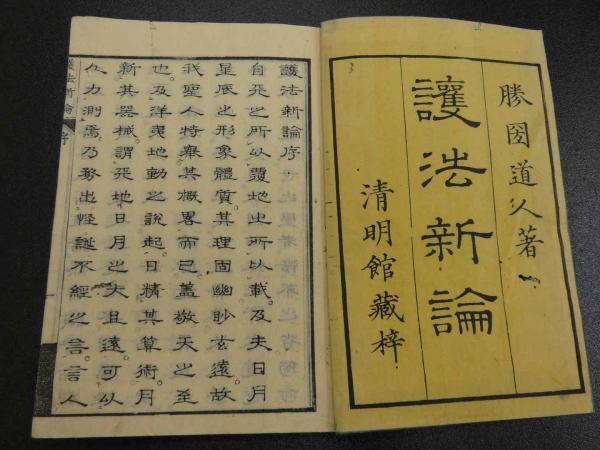 勝国道人著
護法新論
清明館藏梓
護法新論序
自天之所以覆地之所以載及夫日月
星辰之形象體質其理固幽眇玄遠故
我聖人特舉其概畧而已蓋敬天之至
也及洋夷地動之說起日精其算術月
新其器械謂天地日月之大且遠可以
人力測焉乃發出怪誕不經之言言人
護法新論
序